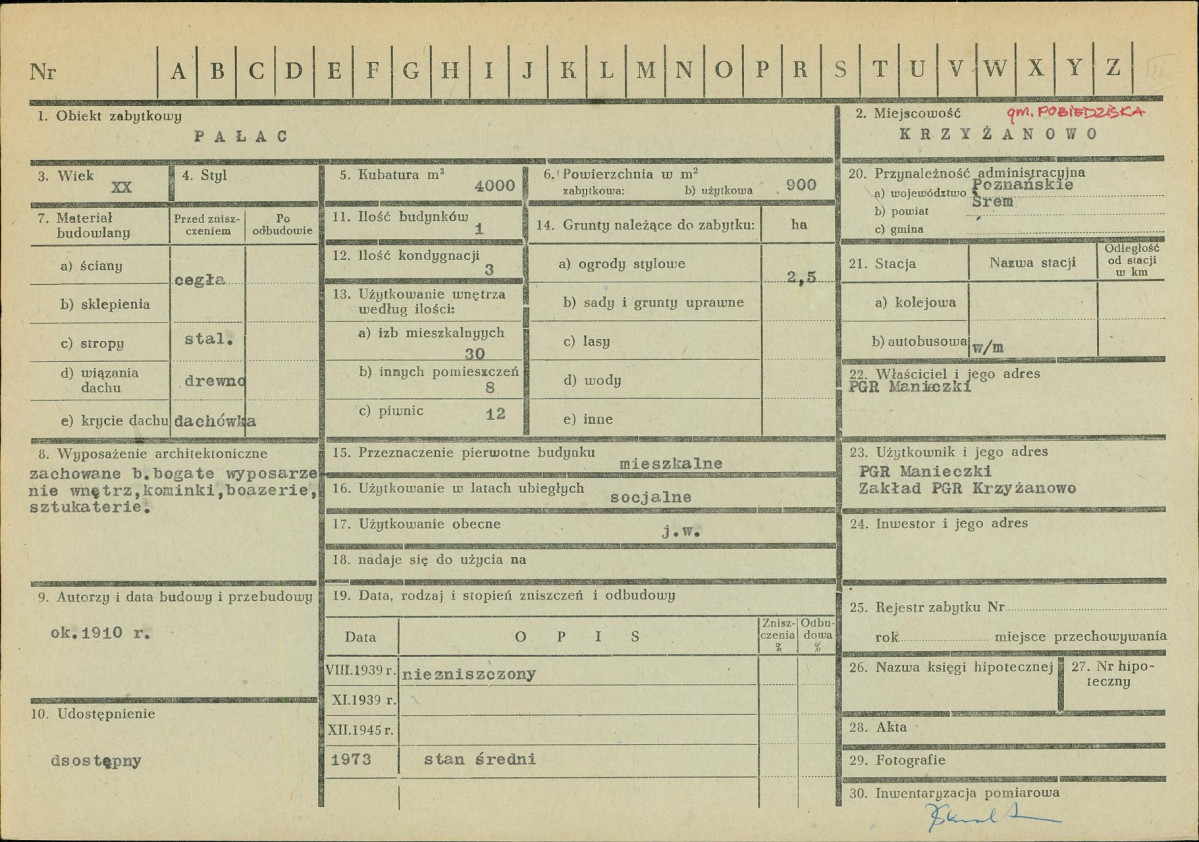 Nr A B C D E F G H I J K L M N O P R S T U V W X Y Z
1. Obiekt zabytkowy
PAŁAC
2. Miejscowość gm. POBIEDZISKA
KRZYŻANOWO
3. Wiek
XX
4. Styl
5. Kubatura m³
4000
6. Powierzchnia w m²
zabytkowa: b) użytkowa 900
20. Przynależność administracyjna
a) województwo Poznańskie
b) powiat Śrem
c) gmina
7. Materiał budowlany
Przed zniszczeniem
Po odbudowie
a) ściany cegła
b) sklepienia
c) stropy stal.
d) wiązania dachu drewno
e) krycie dachu dachówka
11. Ilość budynków
1
12. Ilość kondygnacji
3
13. Użytkowanie wnętrza
według ilości:
a) izb mieszkalnych
30
b) innych pomieszczeń
8
c) piwnic 12
14. Grunty należące do zabytku: ha
a) ogrody stylowe 2,5
b) sady i grunty uprawne
c) lasy
d) wody
e) inne
21. Stacja
Nazwa stacji
Odległość
od stacji
w km
a) kolejowa
b) autobusowa w/m
22. Właściciel i jego adres
PGR Manieczki
8. Wyposażenie architektoniczne
zachowane b.bogate wyposarze
nie wnętrz,kominki,boazerie,
sztukaterie.
15. Przeznaczenie pierwotne budynku mieszkalne
16. Użytkowanie w latach ubiegłych socjalne
17. Użytkowanie obecne j.w.
18. nadaje się do użycia na
23. Użytkownik i jego adres
PGR Manieczki
Zakład PGR Krzyżanowo
24. Inwestor i jego adres
9. Autorzy i data budowy i przebudowy
ok.1910 r.
10. Udostępnienie
dsostępny
19. Data, rodzaj i stopień zniszczeń i odbudowy
Data
OPIS
Zniszczenia %
Odbudowa %
VIII.1939 r. niezniszczony
XI.1939 r.
XII.1945 r.
1973 stan średni
25. Rejestr zabytku Nr
rok miejsce przechowywania
26. Nazwa księgi hipotecznej
27. Nr hipoteczny
28. Akta
29. Fotografie
30. Inwentaryzacja pomiarowa